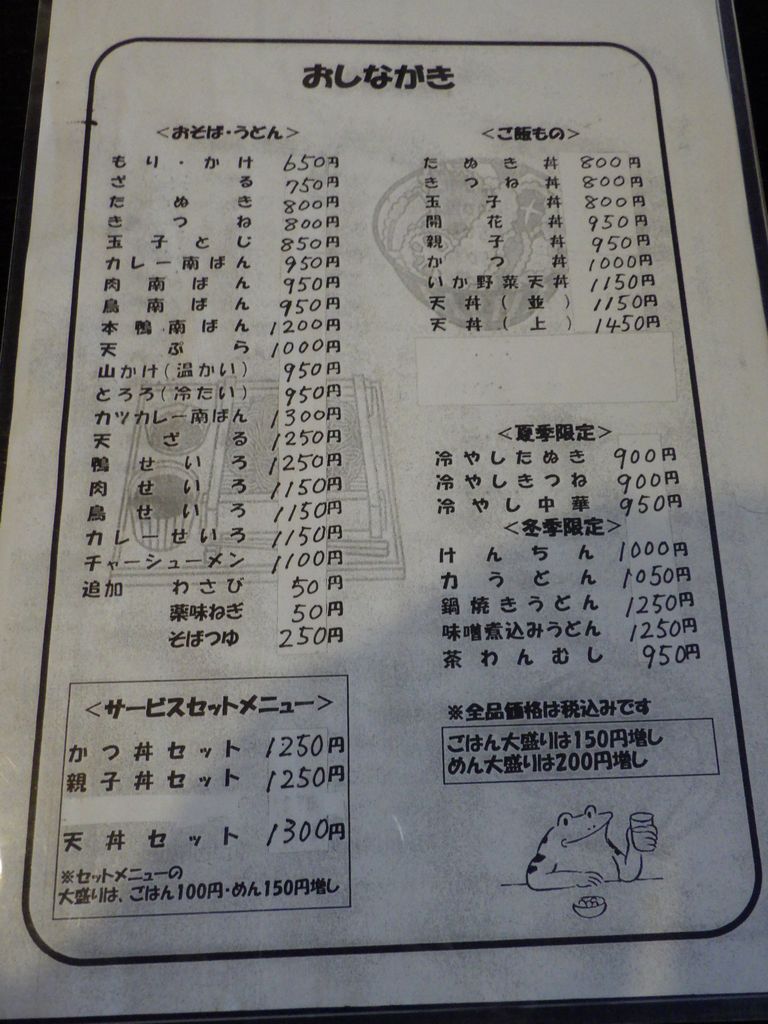 おしながき
<おそば・うどん>
もり・かけ 650円
ざる 750円
たぬき 800円
きつね 800円
玉子とじ 850円
カレー南ばん 950円
肉南ばん 950円
鳥南ばん 950円
本鴨南ばん 1200円
天ぷら 1000円
山かけ(温かい) 950円
とろろ(冷たい) 950円
カツカレー南ばん 1300円
天ざる 1250円
鴨せいろ 1250円
肉せいろ 1150円
鳥せいろ 1150円
カレーせいろ 1150円
チャーシューメン 1100円
追加 わさび 50円
薬味ねぎ 50円
そばつゆ 250円
<サービスセットメニュー>
かつ丼セット 1250円
親子丼セット 1250円
天丼セット 1300円
※セットメニューの
大盛りは、ごはん100円・めん150円増し
<ご飯もの>
たぬき丼 800円
きつね丼 800円
玉子丼 800円
開花丼 950円
親子丼 950円
かつ丼 1000円
いか野菜天丼 1150円
天丼(並) 1150円
天丼(上) 1450円
<夏季限定>
冷やしたぬき 900円
冷やしきつね 900円
冷やし中華 950円
<冬季限定>
けんちん 1000円
力うどん 1050円
鍋焼きうどん 1250円
味噌煮込みうどん 1250円
茶わんむし 950円
※全品価格は税込みです
ごはん大盛りは150円増し
めん大盛りは200円増し